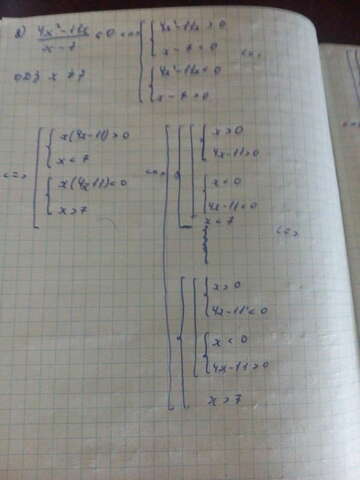 2) (4x²-11x)/(x-7) < 0 <=> [ { 4x²-11x > 0
x-7 < 0
ОДЗ x ≠ 7
{ 4x²-11x < 0
x-7 > 0 <=>
<=> [ { x(4x-11) > 0
x < 7
{ x(4x-11) < 0
x > 7
<=> [ { [ { x > 0
4x-11 > 0
{ x < 0
4x-11 < 0
x < 7
<=>
{ [ { x > 0
4x-11 < 0
{ x < 0
4x-11 > 0
x > 7